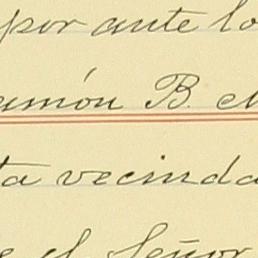 por ante lo
amón B. M
ta vecinda
e el Señor